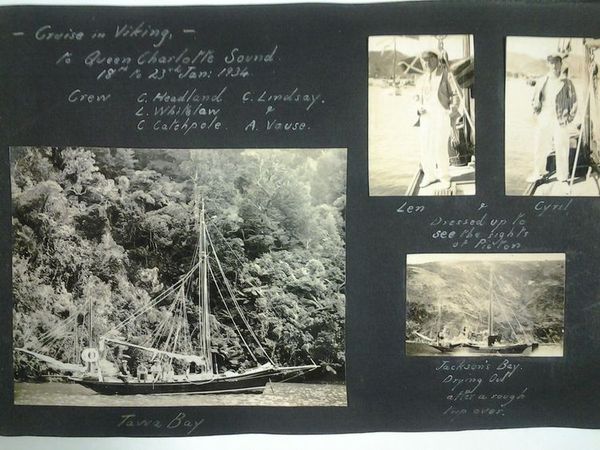 - Cruise in Viking, -
to Queen Charlotte Sound.
18th to 23rd Jan: 1934.
Crew C. Headland C. Lindsay.
L. Whitelaw &
C Catchpole. A. Vause.
Len & Cyril
Dressed up to
see the sights
of Picton
Jackson's Bay.
Drying Out
after a rough
trip over.
Tawa Bay